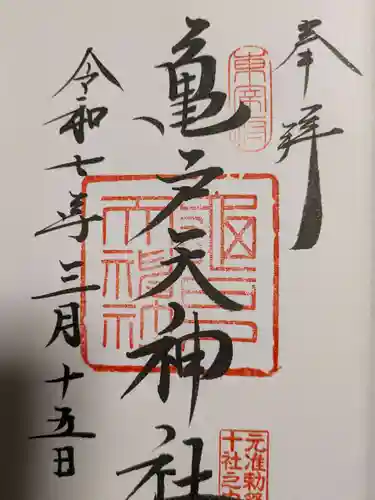 奉拝
東宰府
亀戸天神社
令和七年三月十五日
元准勅祭
十社之内